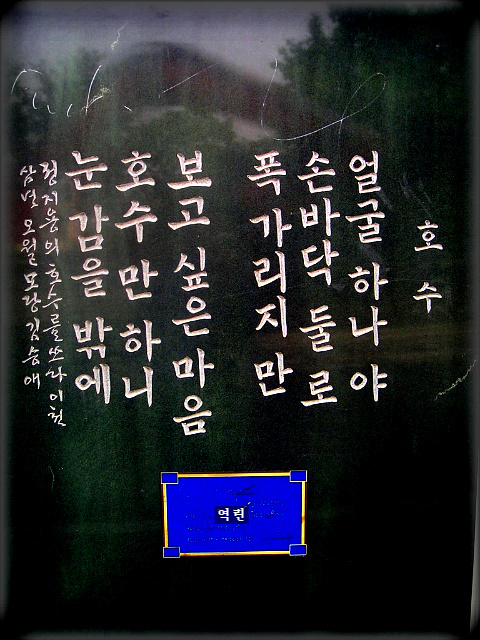 호수
얼굴 하나야
손바닥 둘로
폭 가리지만
보고 싶은 마음
호수만 하니
눈 감을 밖에
정지용의 호수를 쓰다 이천
삼년 오월 모랑 김송애
역린